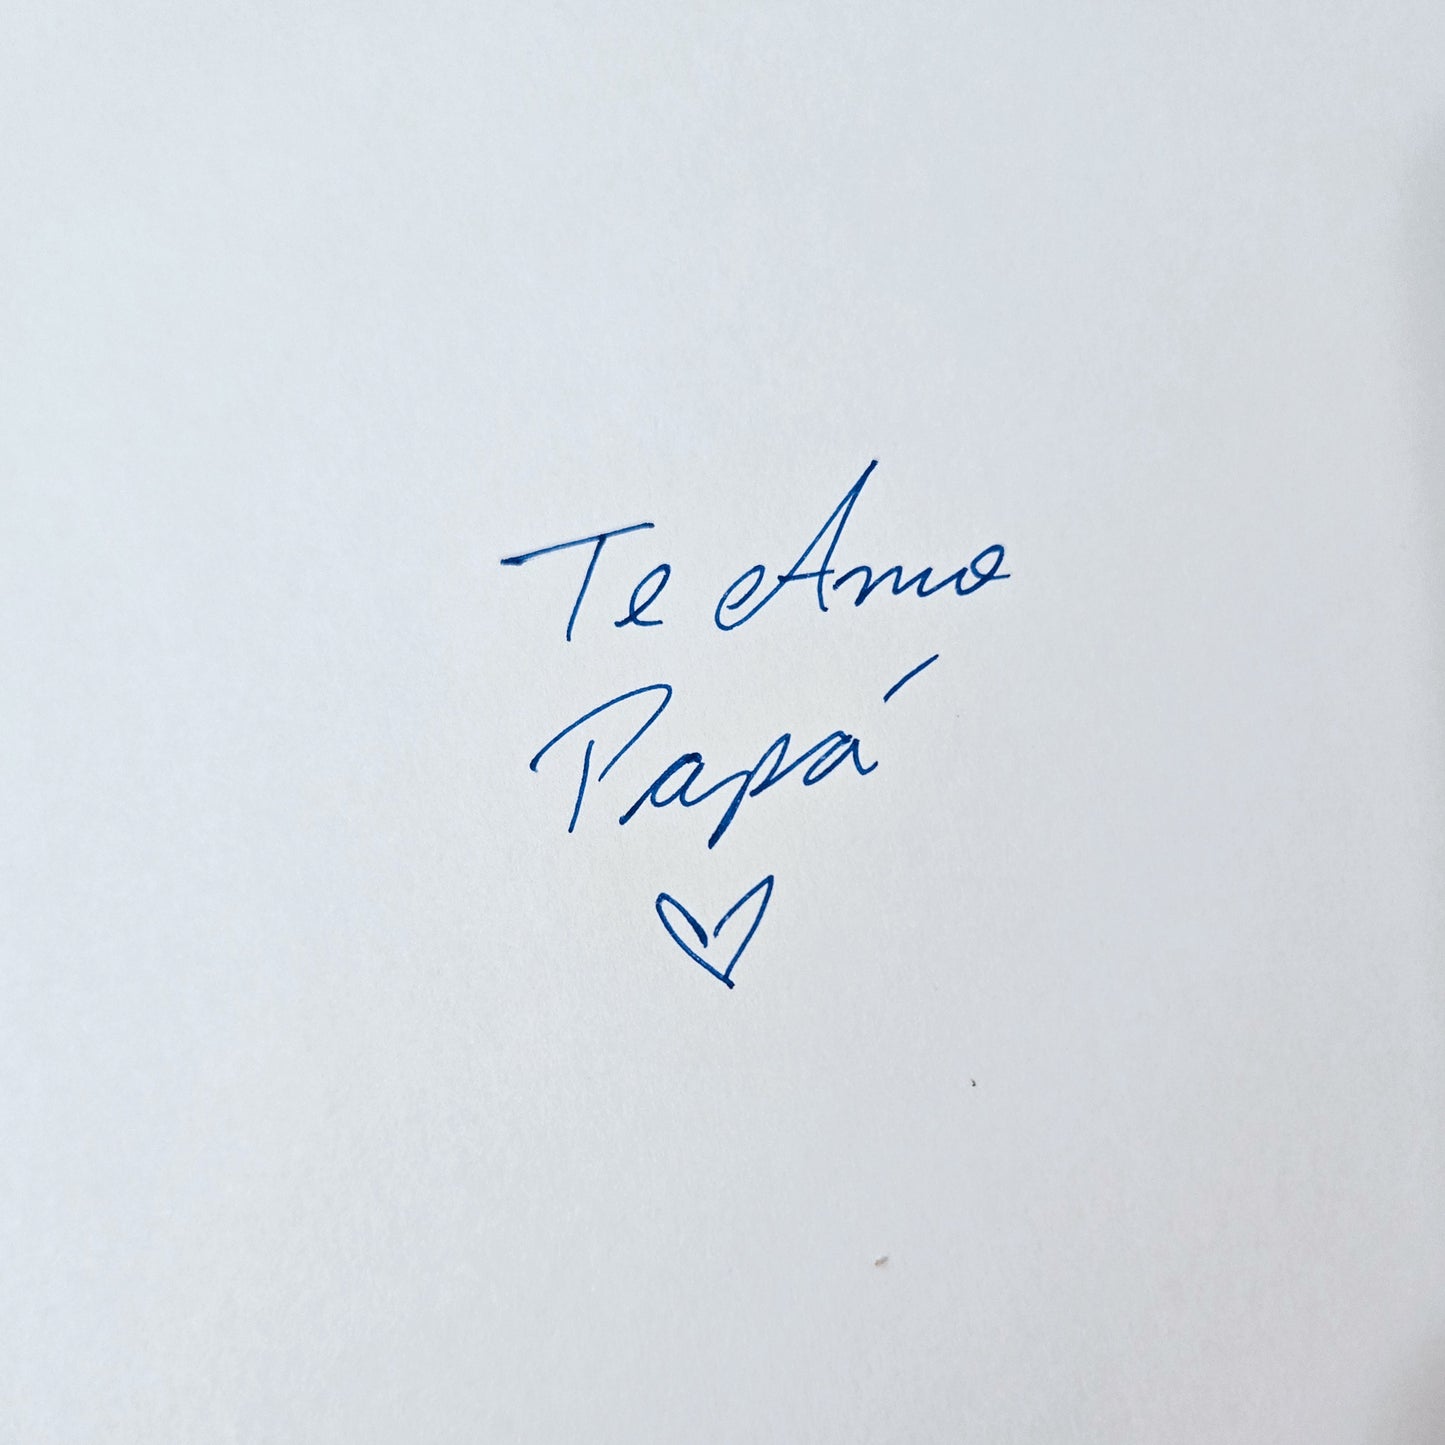 Te Amo
Papá